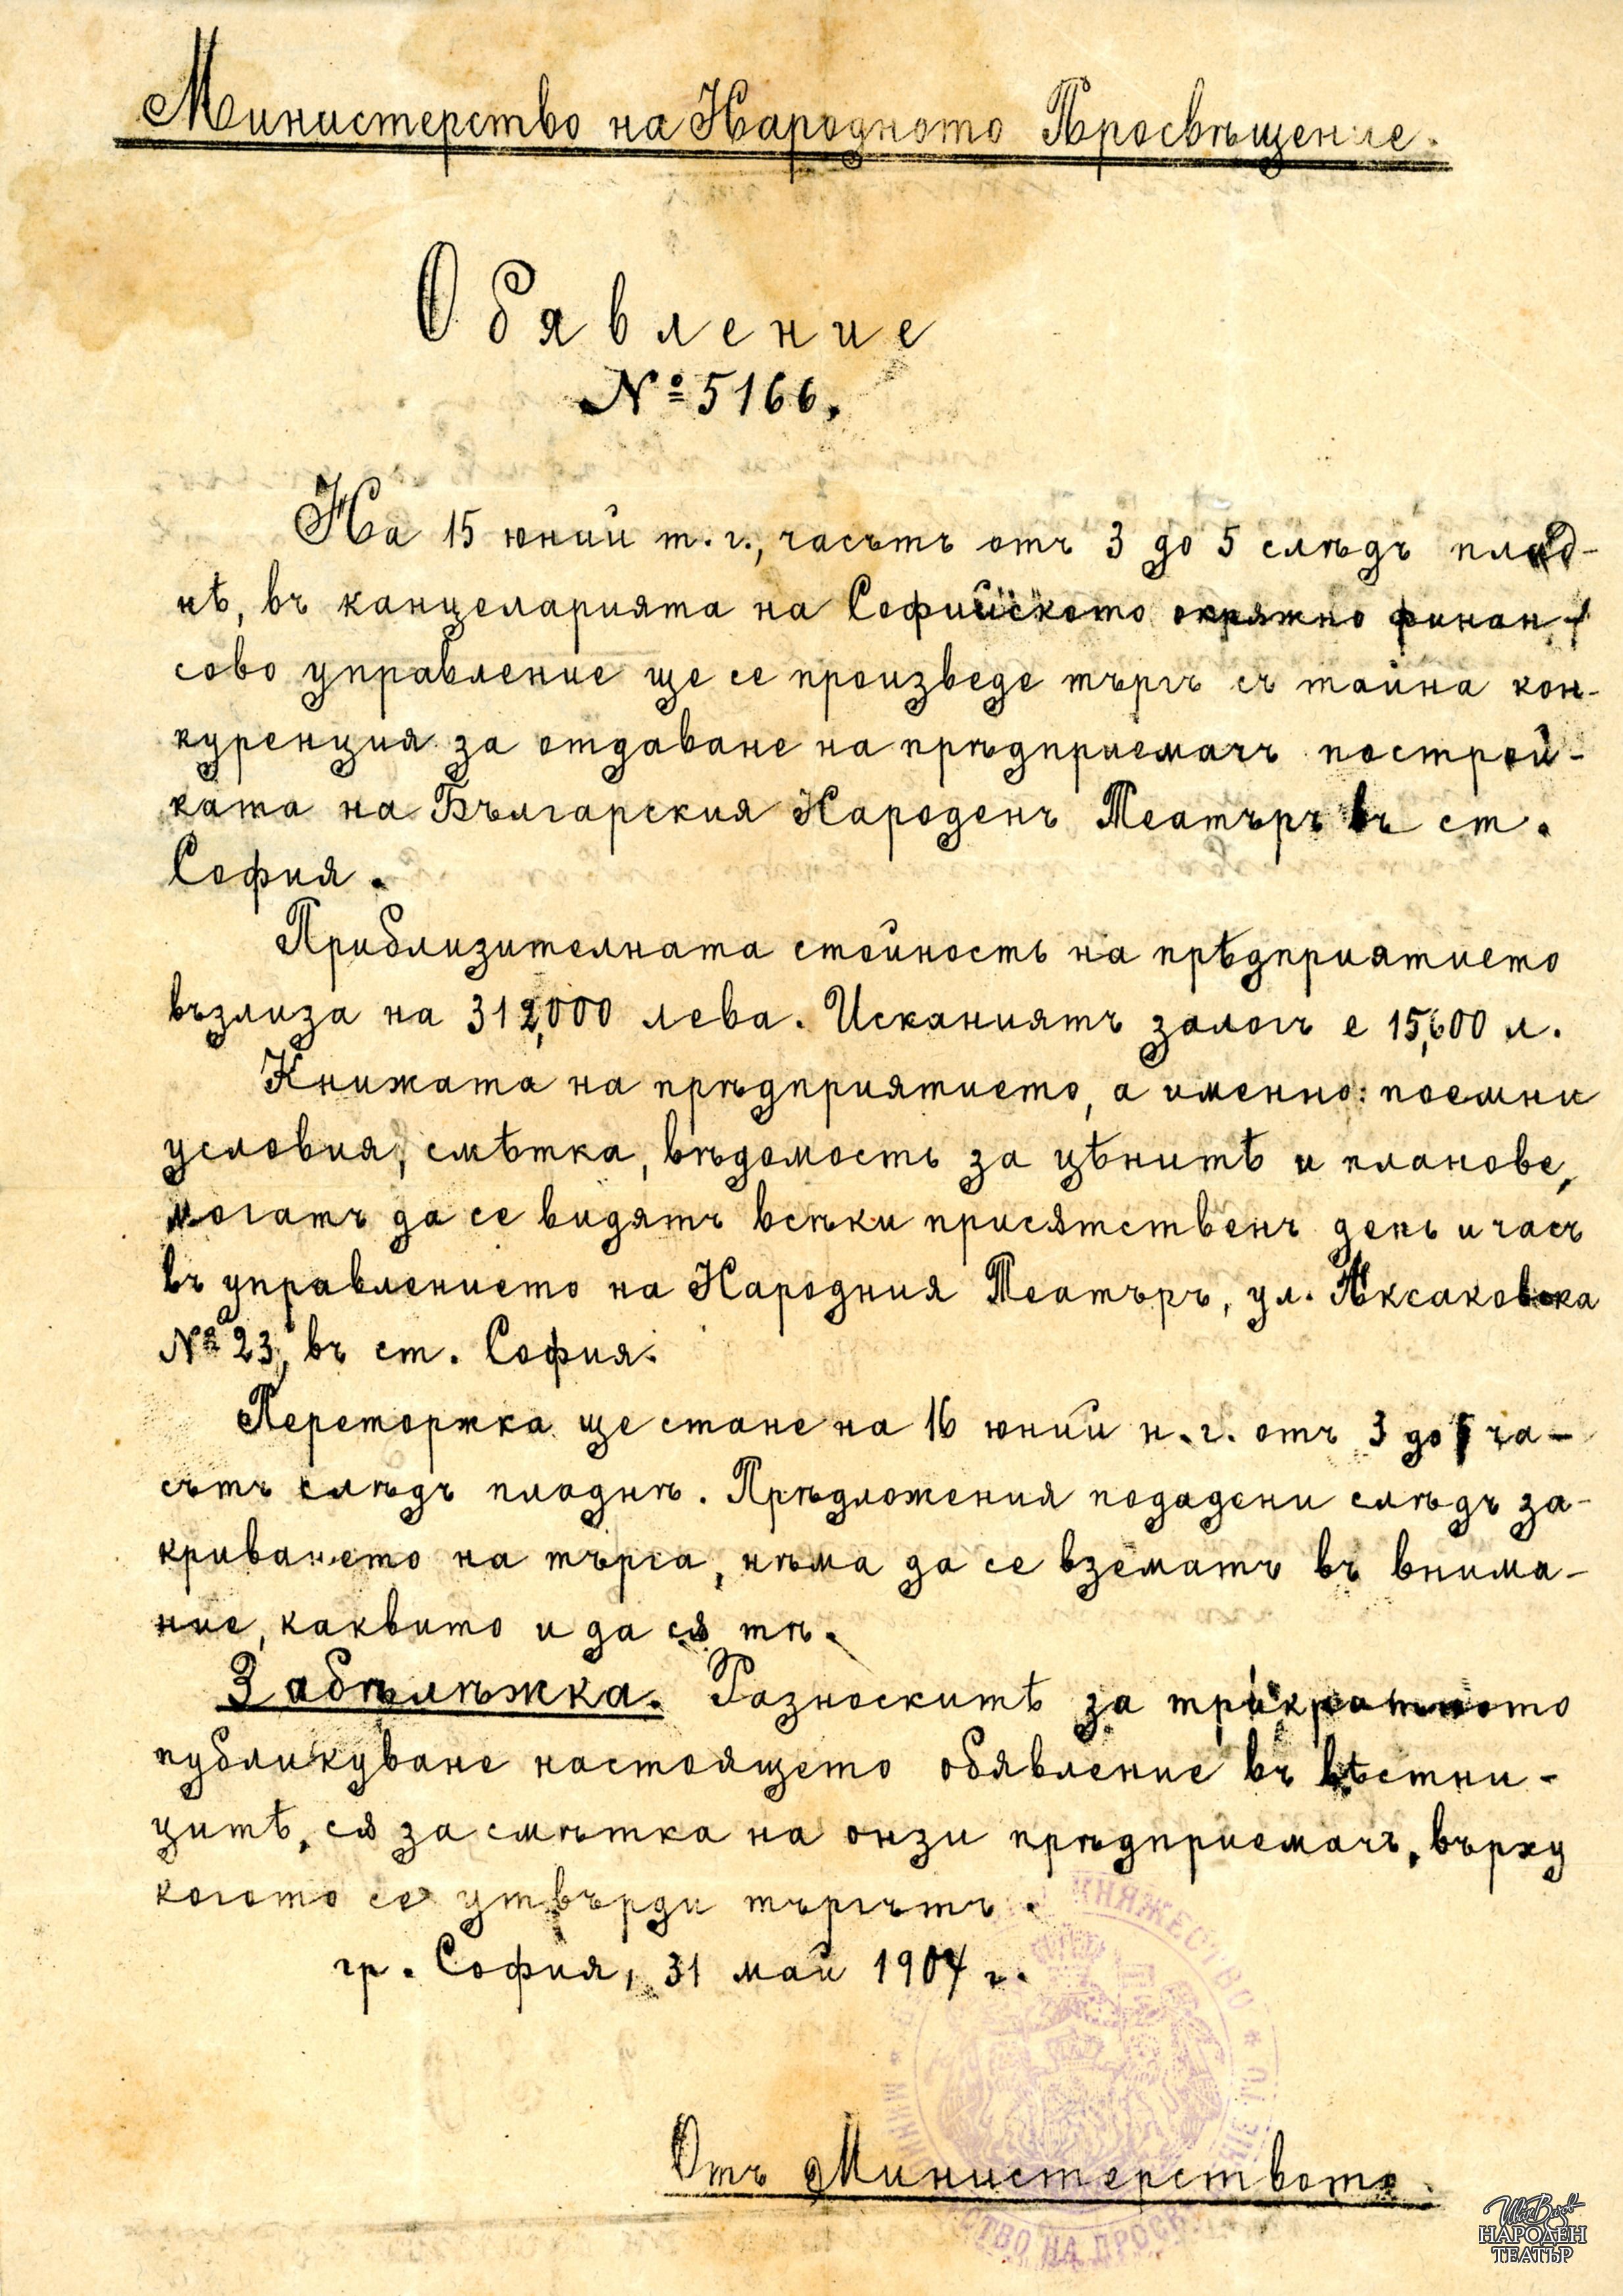 Министерство на Народното Просвѣщение.
Обявление
№ 5166.
На 15 юний т. г., часътъ отъ 3 до 5 слѣдъ плад-
нѣ, въ канцеларията на Софийското окряжно финан-
сово управление ще се произведе търгъ съ тайна кон-
куренция за отдаване на прѣдприемачъ построй-
ката на Българския Народенъ Театъръ въ ст.
София.
Приблизителната стойность на прѣдприятието
възлиза на 312,000 лева. Исканиятъ залогъ е 15,600 л.
Книжата на прѣдприятието, а именно: поемни
условия, смѣтка, вѣдомость за цѣнитѣ и планове,
могатъ да се видятъ всѣки присѫтственъ день и часъ
въ управлението на Народния Театъръ, ул. Аксаковска
№ 23, въ ст. София.
Переторжка ще стане на 16 юний н. г. отъ 3 до 5 ча-
сътъ слѣдъ пладнѣ. Прѣдложения подадени слѣдъ за-
криването на търга, нѣма да се взематъ въ внима-
ние, каквито и да сѫ тѣ.
Забѣлѣжка. Разноскитѣ за трикратното
публикуване настоящето обявление въ вѣстни-
цитѣ, сѫ за смѣтка на онзи прѣдприемачъ, върху
когото се утвърди търгътъ.
гр. София, 31 май 1904 г.
КНЯЖЕСТВО
НА ПРОСВ
Отъ Министерството.
Иван Вазов
НАРОДЕН
ТЕАТЪР